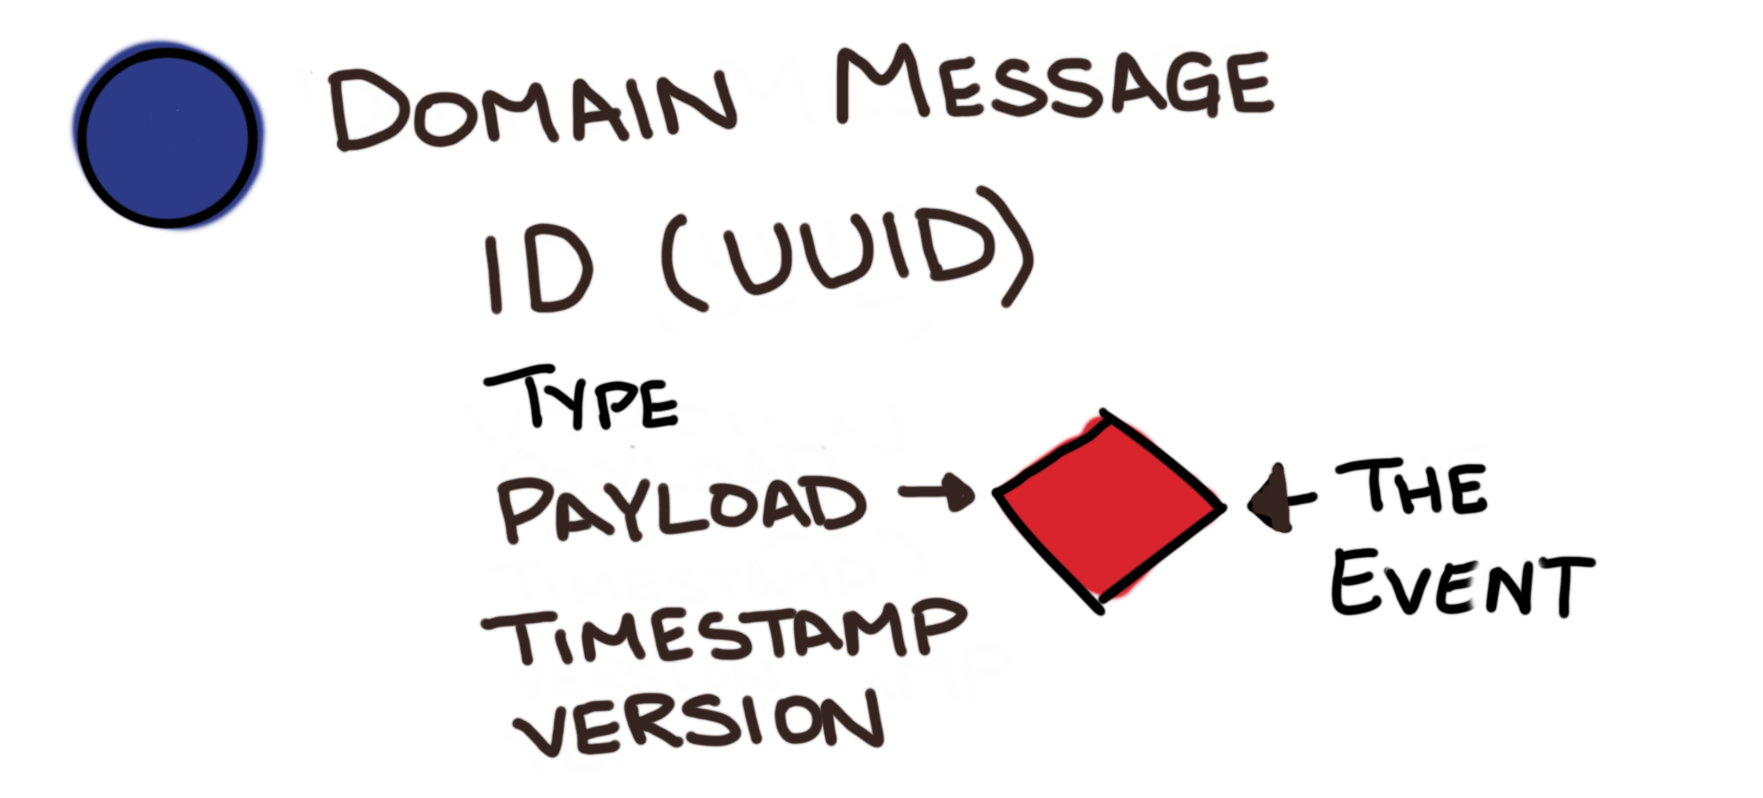 DOMAIN MESSAGE
ID (UUID)
TYPE
PAYLOAD
THE
EVENT
TIMESTAMP
VERSION